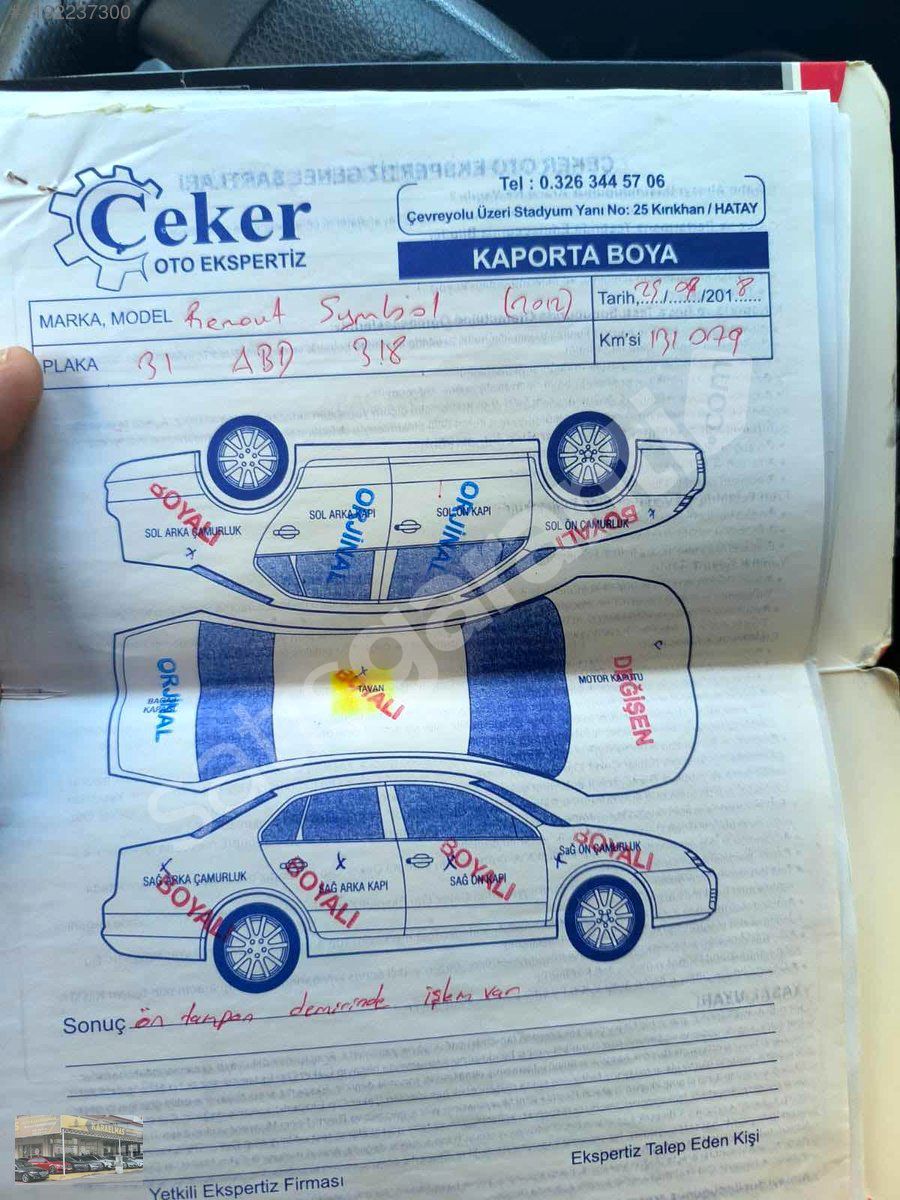 #1182237300
Çeker
OTO EKSPERTİZ
Tel : 0.326 344 57 06
Çevreyolu Üzeri Stadyum Yanı No: 25 Kırıkhan / HATAY
KAPORTA BOYA
MARKA, MODEL Renout Symbol (2012)
Tarih,29./08./2018......
PLAKA 31 ABD 318
Km'si 131 079
BOYALI
SOL ARKA ÇAMURLUK
SOL ARKA KAPI
ORJİNAL
SOL ÖN KAPI
ORJİNAL
SOL ÖN ÇAMURLUK
BOYALI
ORJİNAL
BAGAJ KAPAĞI
TAVAN
BOYALI
MOTOR KAPUTU
DEĞİŞEN
sahagaranti.com
SAĞ ARKA ÇAMURLUK
BOYALI
SAĞ ARKA KAPI
BOYALI
SAĞ ÖN KAPI
BOYALI
SAĞ ÖN ÇAMURLUK
BOYALI
Sonuç ön tampon demirinde işlem var
Ekspertiz Talep Eden Kişi
Yetkili Ekspertiz Firması
KARAELMAS